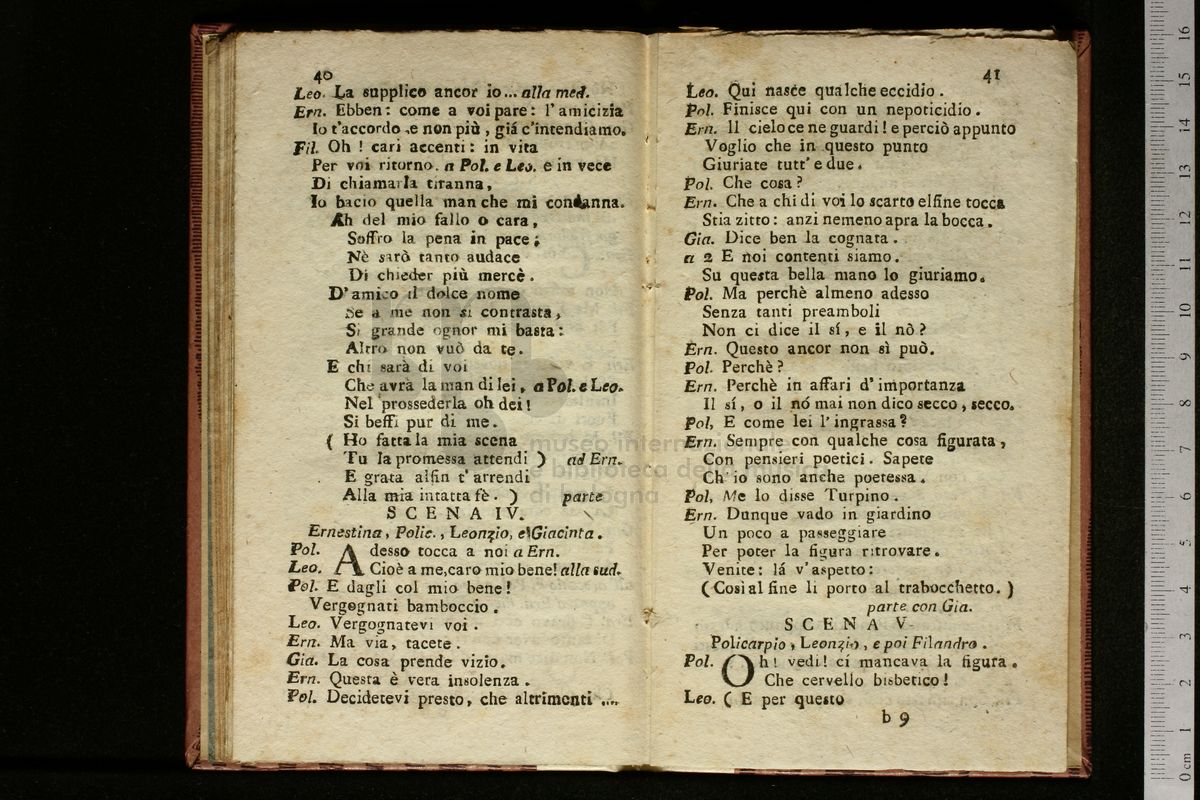 40
Leo. La supplico ancor io... alla med.
Ern. Ebben: come a voi pare: l'amicizia
Io t'accordo, e non più, giá c'intendiamo.
Fil. Oh! cari accenti: in vita
Per voi ritorno. a Pol. e Leo. e in vece
Di chiamarla tiranna,
Io bacio quella man che mi condanna.
Ah del mio fallo o cara,
Soffro la pena in pace;
Nè sarò tanto audace
Di chieder più mercè.
D'amico il dolce nome
Se a me non si contrasta,
Si grande ognor mi basta:
Altro non vuò da te.
E chi sarà di voi
Che avra la man di lei, a Pol. e Leo.
Nel prossederla oh dei!
Si beffi pur di me.
( Ho fatta la mia scena
Tu la promessa attendi ) ad Ern.
E grata alfin t'arrendi
Alla mia intatta fè. ) parte
SCENA IV.
Ernestina, Polic., Leonzio, e Giacinta.
Pol. Adesso tocca a noi a Ern.
Leo. Cioè a me, caro mio bene! alla sud.
Pol. E dagli col mio bene!
Vergognati bamboccio.
Leo. Vergognatevi voi.
Ern. Ma via, tacete.
Gia. La cosa prende vizio.
Ern. Questa è vera insolenza.
Pol. Decidetevi presto, che altrimenti ....
41
Leo. Qui nasce qualche eccidio.
Pol. Finisce qui con un nepoticidio.
Ern. Il cielo ce ne guardi! e perciò appunto
Voglio che in questo punto
Giuriate tutt' e due.
Pol. Che cosa?
Ern. Che a chi di voi lo scarto elfine tocca
Stia zitto: anzi nemeno apra la bocca.
Gia. Dice ben la cognata.
a 2 E noi contenti siamo.
Su questa bella mano lo giuriamo.
Pol. Ma perchè almeno adesso
Senza tanti preamboli
Non ci dice il sí, e il nò?
Ern. Questo ancor non sì può.
Pol. Perchè?
Ern. Perchè in affari d'importanza
Il sí, o il nó mai non dico secco, secco.
Pol, E come lei l'ingrassa?
Ern. Sempre con qualche cosa figurata,
Con pensieri poetici. Sapete
Ch'io sono anche poetessa.
Pol, Me lo disse Turpino.
Ern. Dunque vado in giardino
Un poco a passeggiare
Per poter la figura ritrovare.
Venite: lá v'aspetto:
(Così al fine li porto al trabocchetto.)
parte con Gia.
SCENA V.
Policarpio, Leonzio, e poi Filandro.
Pol. Oh! vedi! ci mancava la figura.
Che cervello bisbetico!
Leo. ( E per questo
b 9
museo internazionale
e biblioteca della musica
di bologna
0 cm 1 2 3 4 5 6 7 8 9 10 11 12 13 14 15 16